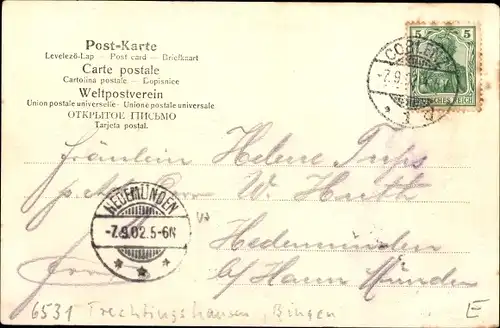 Post-Karte
Levelező-Lap — Post card — Briefkaart
Carte postale
Cartolina postale — Dopisnice
Weltpostverein
Union postale universelle - Unione postale universale
ОТКРЫТОЕ ПИСЬМО
Tarjeta postal.
5 5
DEUTSCHES REICH
COBLENZ
-7.9.02
* 1 d
Fräulein Helene
W. Huth
HEDEMÜNDEN
-7.9.02.5-6N
* * *
Hedemünden
b/ Hann Münden
6531 Trechtingshausen, Bingen
E